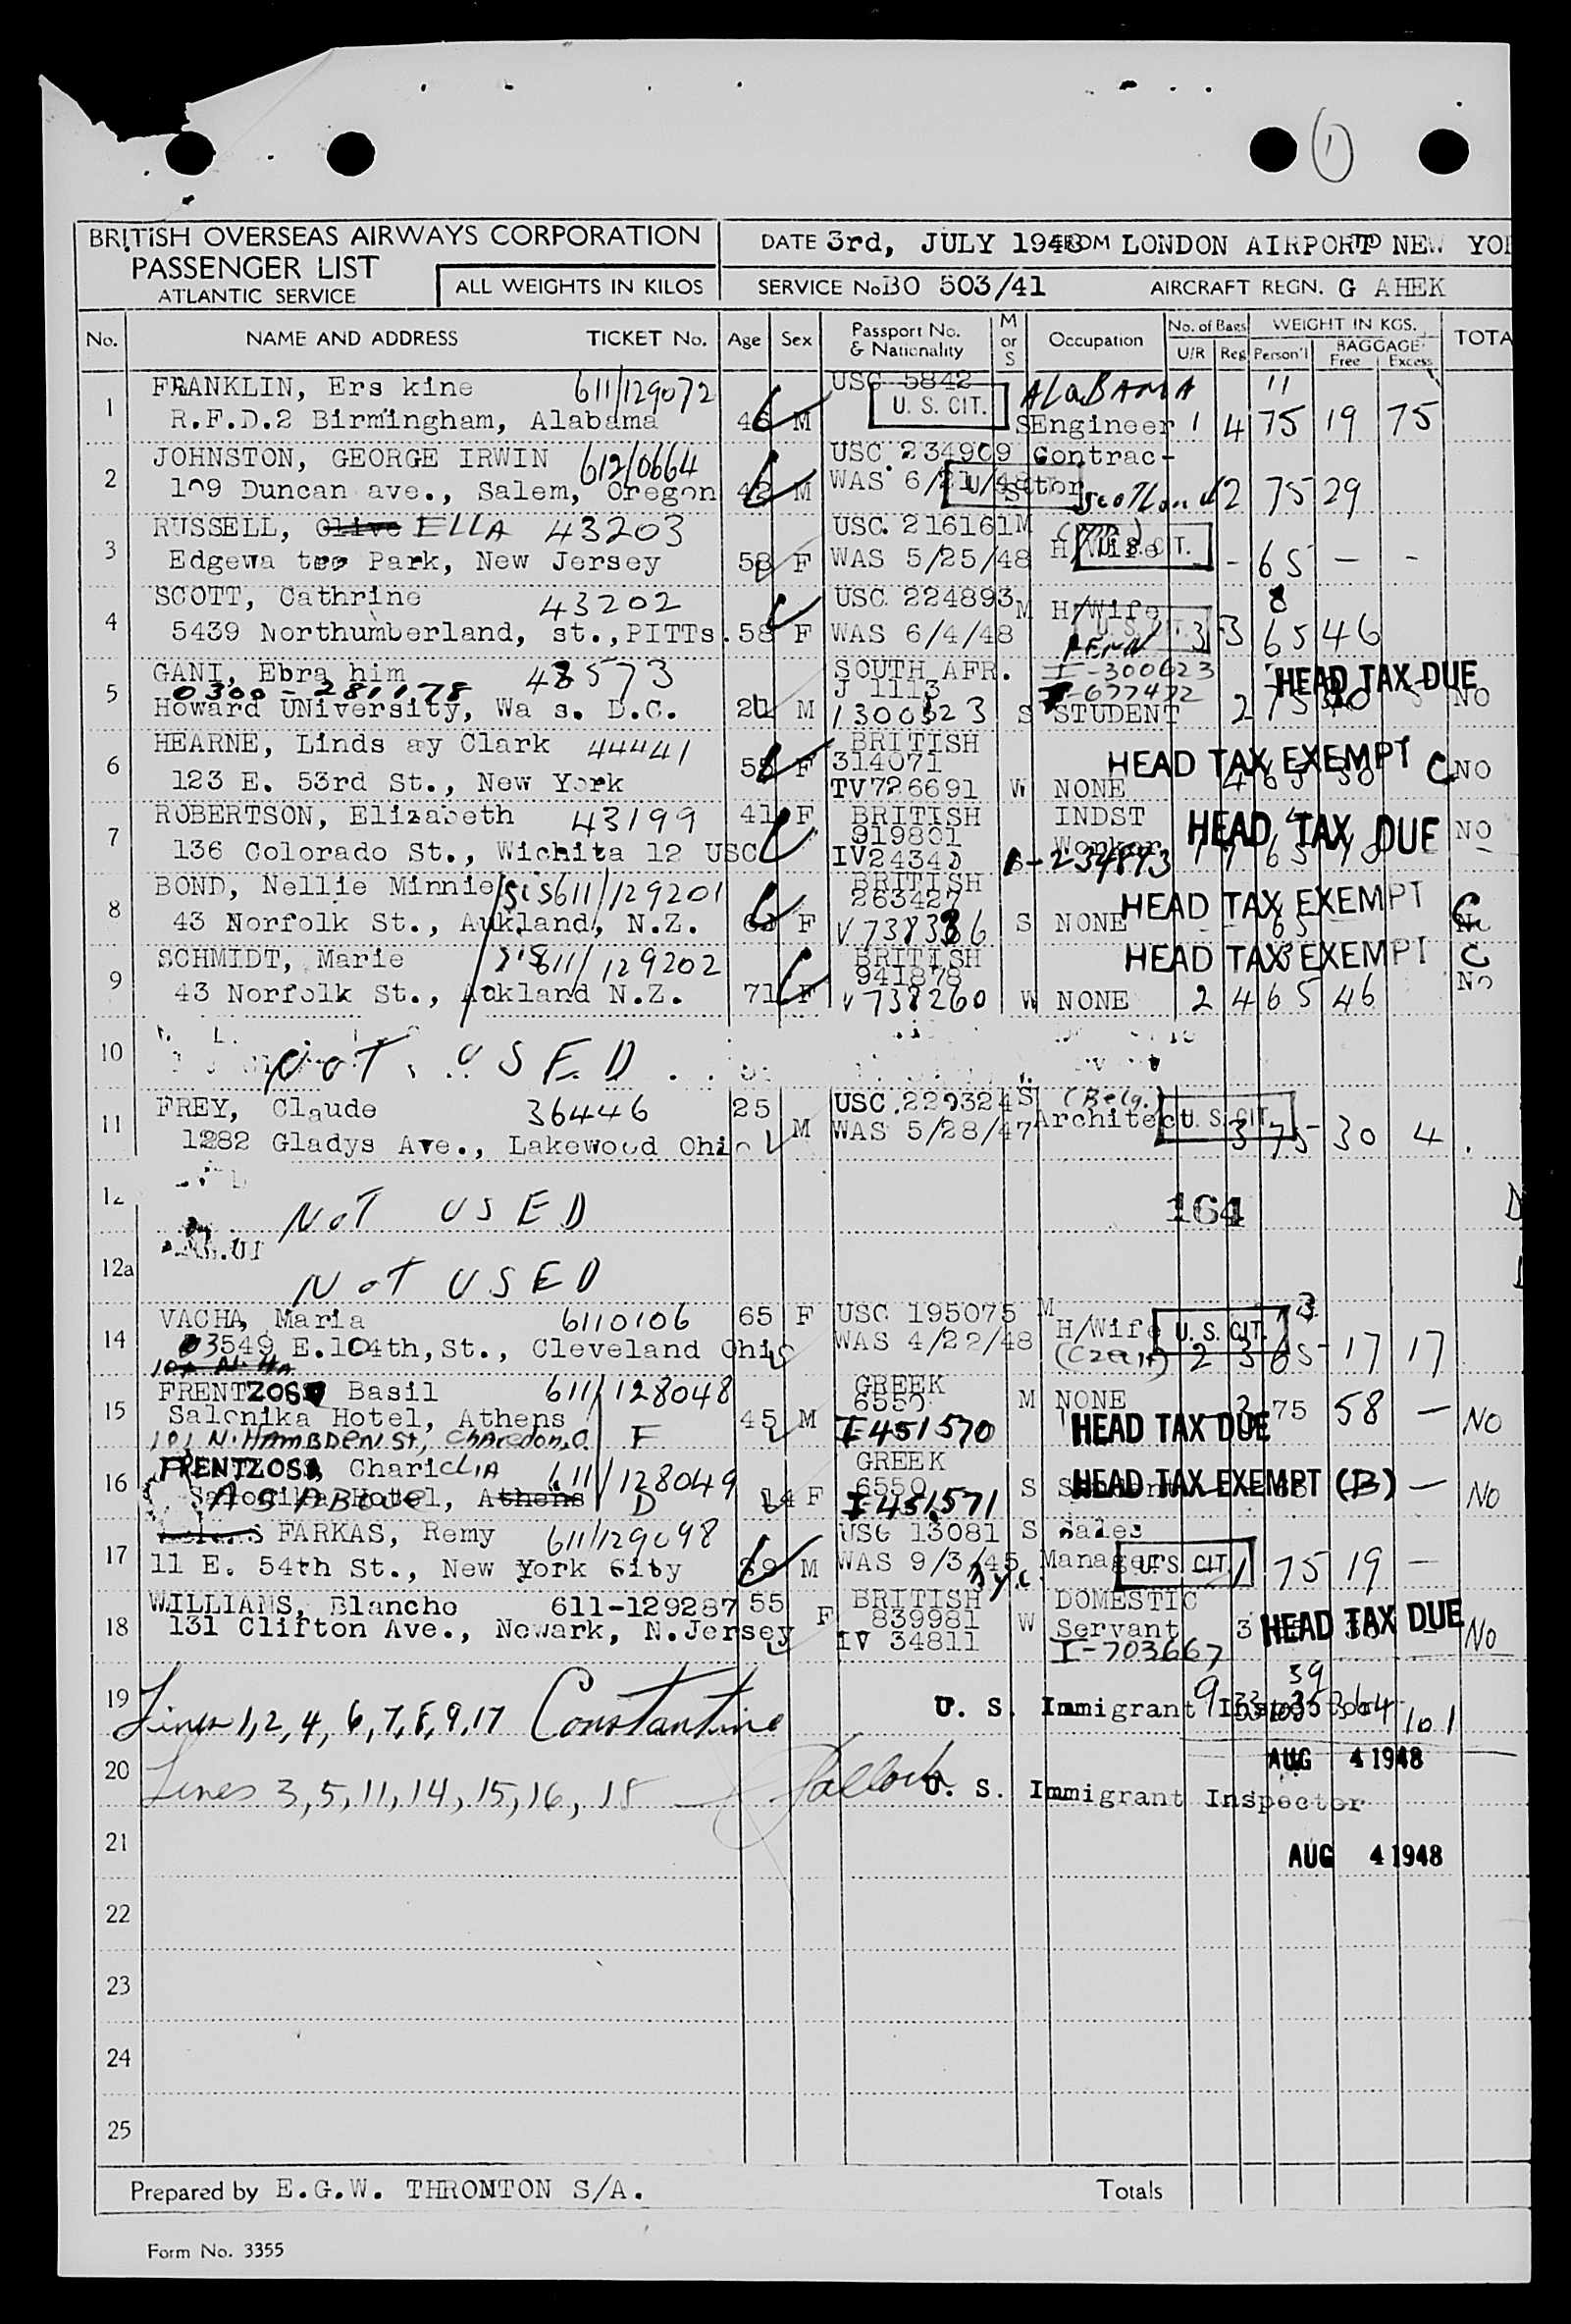 BRITISH OVERSEAS AIRWAYS CORPORATION
PASSENGER LIST
ATLANTIC SERVICE
ALL WEIGHTS IN KILOS
DATE 3rd, JULY 1948 FROM LONDON AIRPORT TO NEW YOR
SERVICE No. BO 503/41 AIRCRAFT REGN. G AHEK
No. NAME AND ADDRESS TICKET No. Age Sex Passport No. & Nationality M or S Occupation No. of Bags U/R Reg WEIGHT IN KGS. Person'l BAGGAGE Free Excess TOTA
1 FRANKLIN, Ers kine 611/129072 USC 5842 U. S. CIT. ALaBAMA 11
R.F.D.2 Birmingham, Alabama 46 M S Engineer 1 4 75 19 75
2 JOHNSTON, GEORGE IRWIN 612/0664 USC 234909 Contrac-
109 Duncan ave., Salem, Oregon 42 M WAS 6/21/48 tor Scotland 2 75 29
3 RUSSELL, Olive ELLA 43203 USC. 216161 M
Edgewa tee Park, New Jersey 58 F WAS 5/25/48 H/Wife U. S. CIT. - - 65 - -
4 SCOTT, Cathrine 43202 USC 224893 M H/Wife 8
5439 Northumberland, st., PITTs. 58 F WAS 6/4/48 PENN 3 3 65 46
5 GANI, Ebra him 48573 SOUTH AFR. I-300623 HEAD TAX DUE
0300-281178 J 1113 I-677472
Howard UNiversity, Wa s. D.C. M S STUDENT 2 75 NO
6 HEARNE, Linds ay Clark 44441 BRITISH HEAD TAX EXEMPT C NO
123 E. 53rd St., New York 58 F 314071
TV726691 W NONE
7 ROBERTSON, Elizabeth 43199 41 F BRITISH INDST HEAD TAX DUE NO
136 Colorado St., Wichita 12 USC 919801 Worker
8 BOND, Nellie Minnie sis 611/129201 BRITISH HEAD TAX EXEMPT C
43 Norfolk St., Aukland, N.Z. F 263427 S NONE No
9 SCHMIDT, Marie sis 611/129202 BRITISH HEAD TAX EXEMPT C
43 Norfolk St., Ackland N.Z. 71 F 941878 No
V738260 W NONE 2 4 65 46
10 NOT USED
11 FREY, Claude 36446 25 USC 229324 S (Belg.)
1282 Gladys Ave., Lakewood Ohio M WAS 5/28/47 Architect U. S. CIT. 3 75 30 4
12 NOT USED 164
12a NOT USED
14 VACHA, Maria 6110106 65 F USC 195075 M
3549 E.104th, St., Cleveland Ohio WAS 4/22/48 H/Wife U. S. CIT. (Czech) 2 3 65 17 17
15 FRENTZOS Basil 611/128048 GREEK
Salonika Hotel, Athens 45 M 6550 M NONE 75 58 - NO
101 N. HAMBDEN St., Chardon, O. F I-451570 HEAD TAX DUE
16 FRENTZOS, CharicLIA 611/128049 GREEK
Salonika Hotel, Athens AS ABOVE D 14 F 6550 S HEAD TAX EXEMPT (B) - NO
I-451571
17 FARKAS, Remy 611/129098 USC 13081 S Sales
11 E. 54th St., New York City 39 M WAS 9/3/45 Manager U. S. CIT. 1 75 19 -
N.Y.C.
18 WILLIAMS, Blanche 611-129287 55 F BRITISH W DOMESTIC
131 Clifton Ave., Newark, N.Jersey 839981 Servant 3 HEAD TAX DUE No
IV 34811 I-703667
19 Lines 1,2,4,6,7,8,9,17 Constantine U. S. Immigrant Inspector 101
AUG 4 1948
20 Lines 3,5,11,14,15,16,18 U. S. Immigrant Inspector
21 AUG 4 1948
22
23
24
25
Prepared by E.G.W. THROMTON S/A. Totals
Form No. 3355